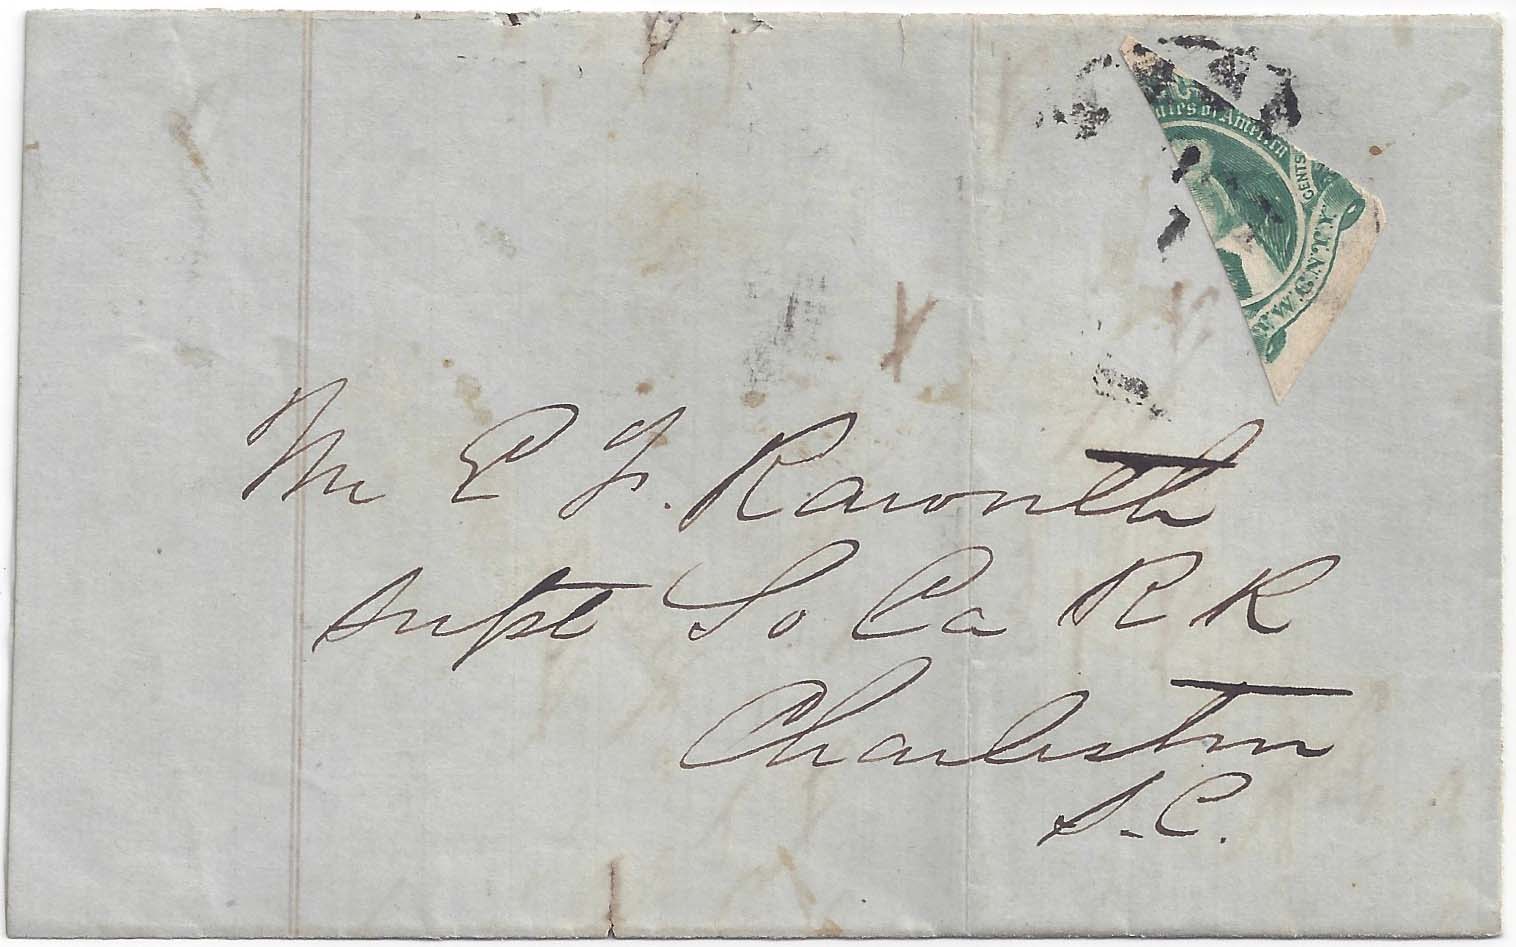 ates of America
CENTS
TWENTY
Mr E F. Raworth
Supt So Ca R R
Charleston
S. C.